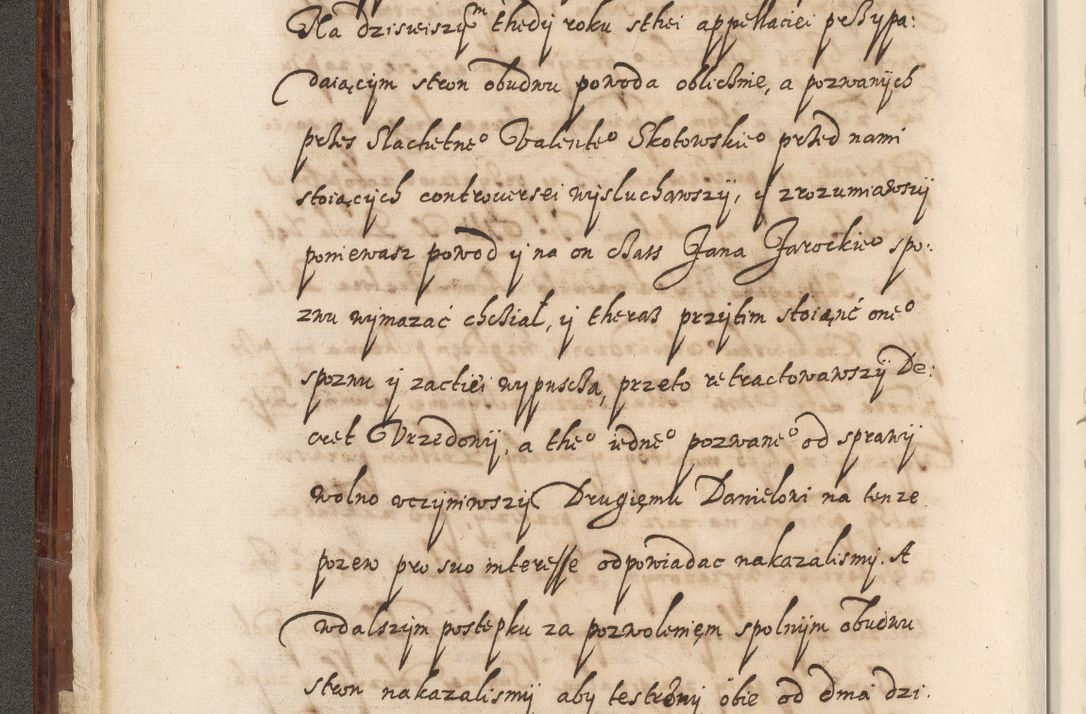 Na dzisieiszÿm thedÿ roku sthei appellaciei przÿpa:
daiącÿm stron obudwu powoda obliczbnie, a pozwanÿch
przes Slachetne° Valente° Skotowskie° przed nami
stoiącÿch controuersei wÿsluchawszÿ, ÿ zrozumiawszÿ
poniewasz powod ÿ na on czas Jana Jarockie° spo:
zwu wÿmazać chcział, ÿ theraz przÿtim stoiąnć one°
spozwu ÿ zactiei wÿpuscza, przeto retractowawszÿ De:
cret Vrzedowÿ, a the° iedne° pozwane° od sprawÿ
wolno vczÿniwszÿ Drugięmu Danielowi na tenze
pozew pro suo interesse odpowiadac nakazalismÿ. A
wdalszÿm postępku za pozwolenięm spolnÿm obudwu
stron nakazalismÿ abÿ te stronÿ obie od dnia dzi: